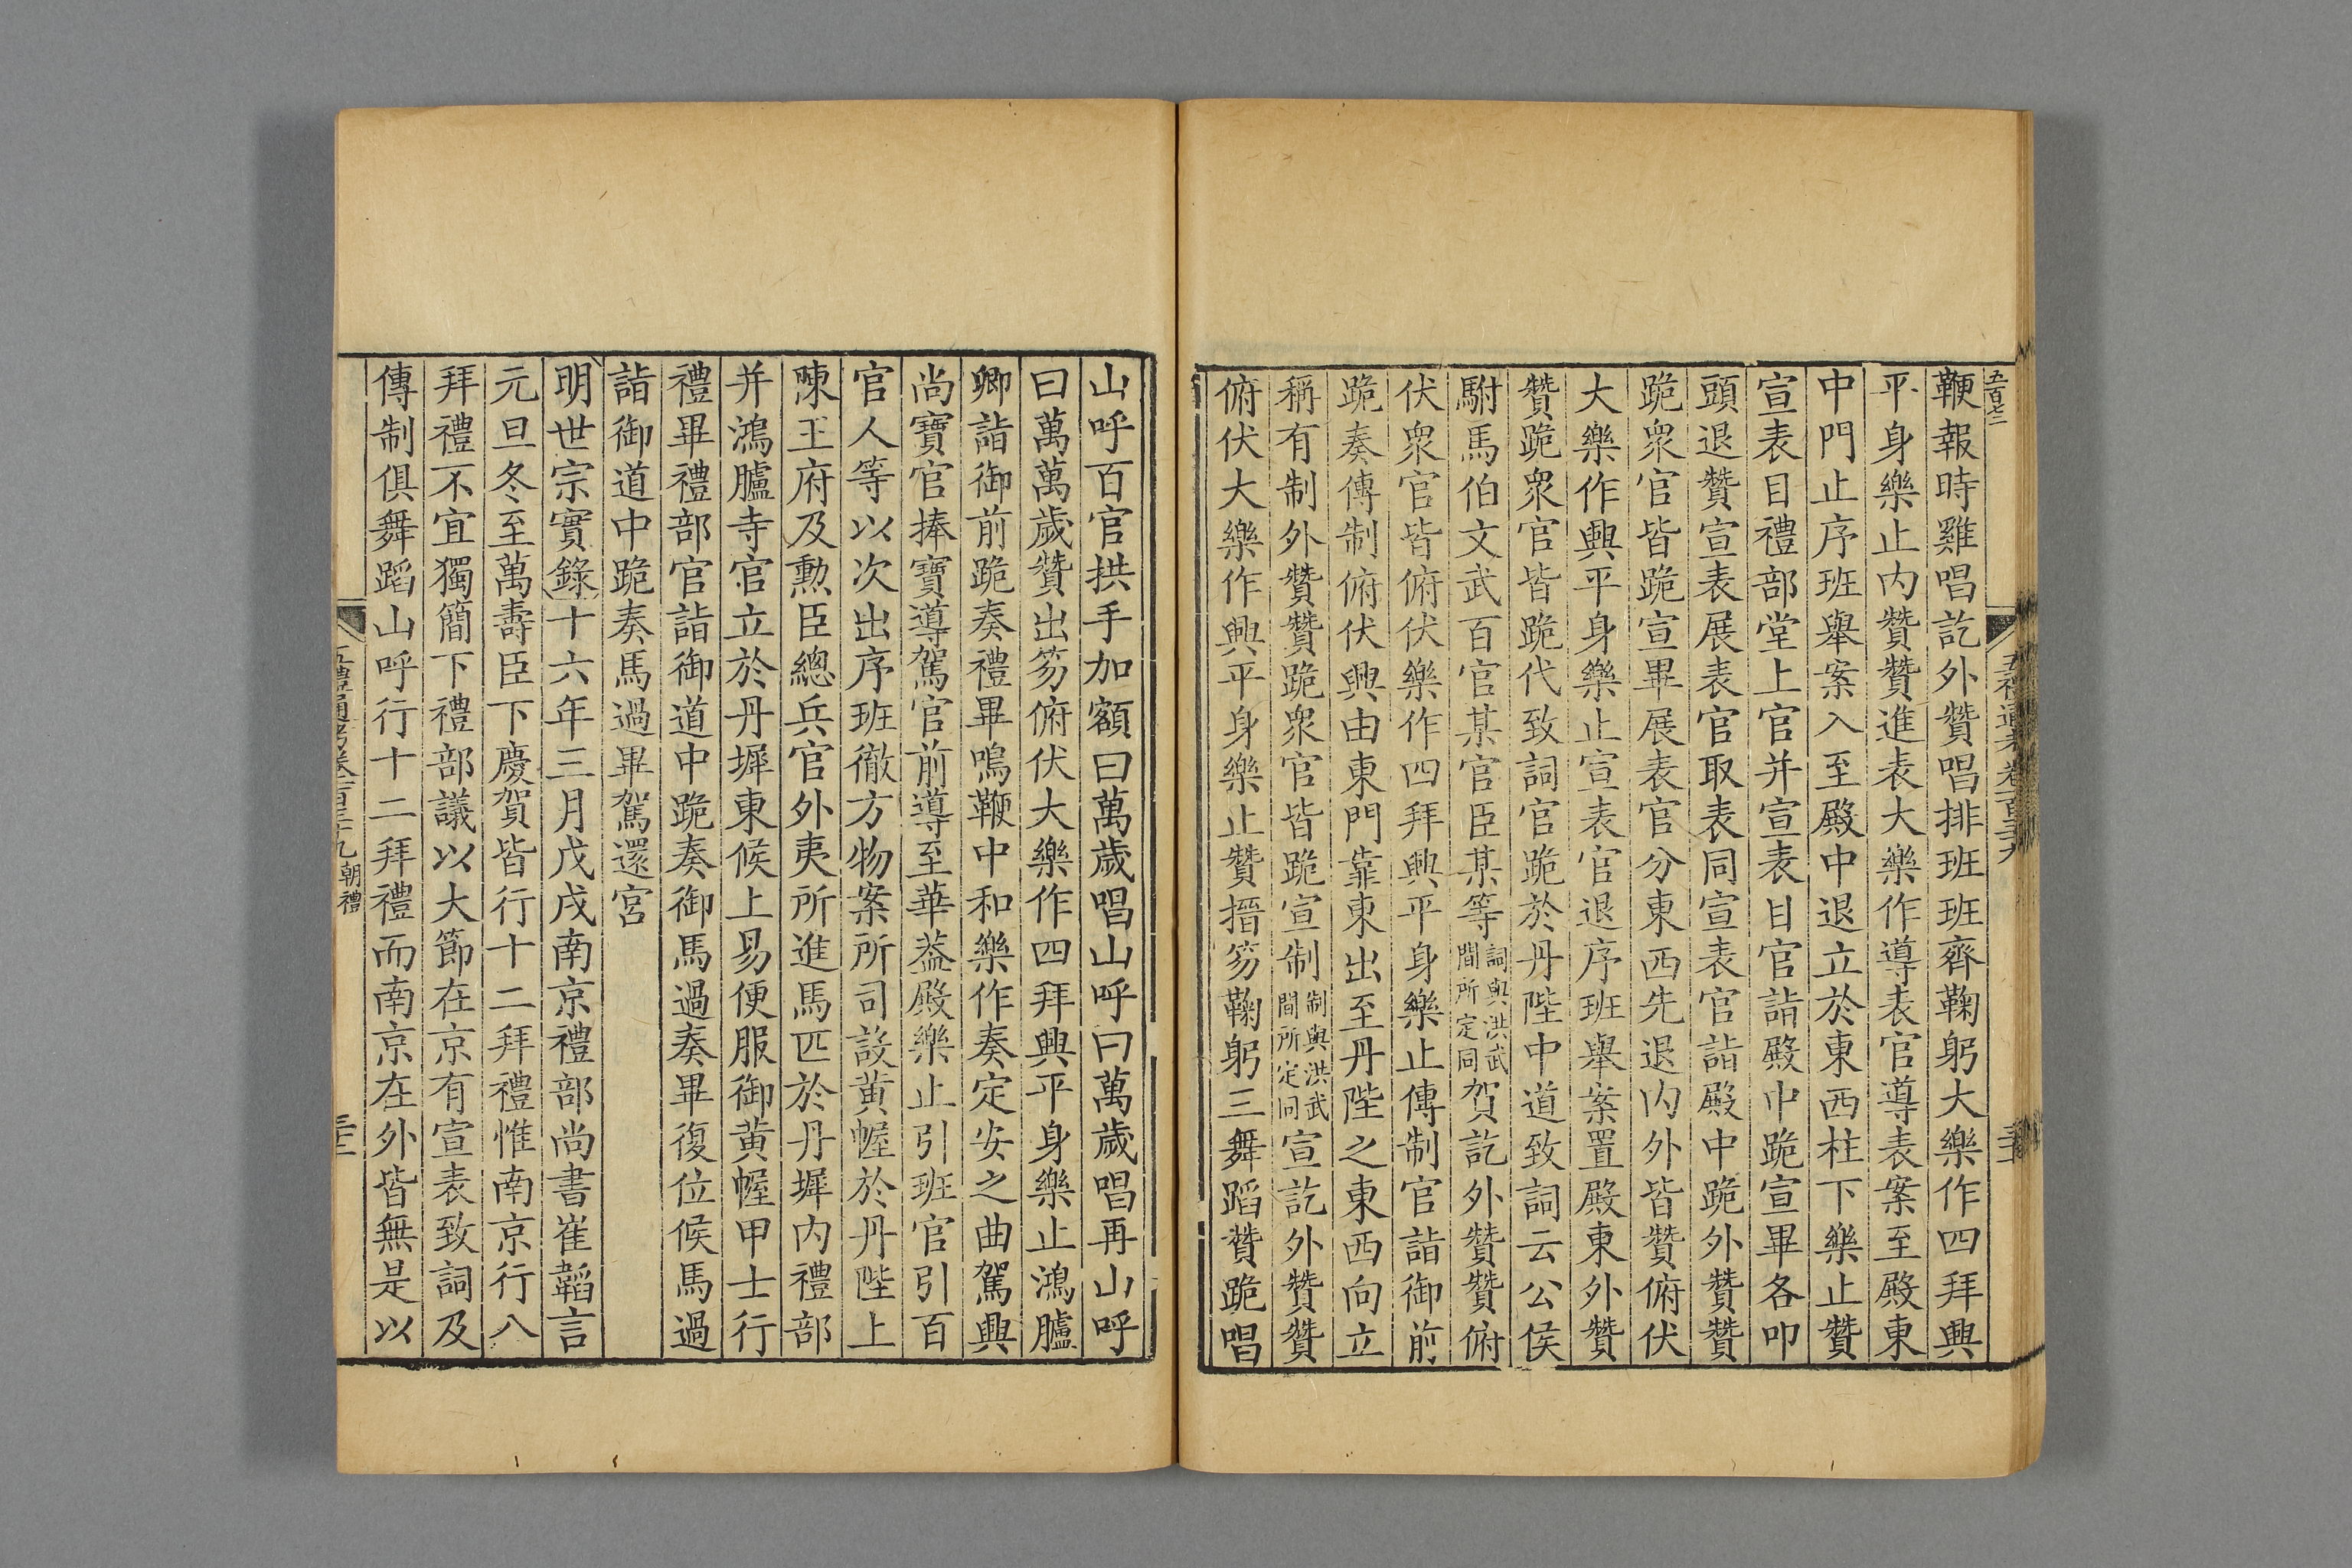 五百七二
鞭報時雞唱訖外贊唱排班班齊鞠躬大樂作四拜興
平身樂止內贊贊進表大樂作導表官導表案至殿東
中門止序班舉案入至殿中退立於東西柱下樂止贊
宣表目禮部堂上官并宣表目官詣殿中跪宣畢各叩
頭退贊宣表展表官取表同宣表官詣殿中跪外贊贊
跪衆官皆跪宣畢展表官分東西先退內外皆贊俯伏
大樂作興平身樂止宣表官退序班舉案置殿東外贊
贊跪衆官皆跪代致詞官跪於丹陛中道致詞云公侯
駙馬伯文武百官某官臣某等詞與洪武間所定同賀訖外贊贊俯
伏衆官皆俯伏樂作四拜興平身樂止傳制官詣御前
跪奏傳制俯伏興由東門靠東出至丹陛之東西向立
稱有制外贊贊跪衆官皆跪宣制制與洪武間所定同宣訖外贊贊
俯伏大樂作興平身樂止贊搢笏鞠躬三舞蹈贊跪唱
山呼百官拱手加額曰萬歲唱山呼曰萬歲唱再山呼
曰萬萬歲贊出笏俯伏大樂作四拜興平身樂止鴻臚
卿詣御前跪奏禮畢鳴鞭中和樂作奏定安之曲駕興
尚寶官捧寶導駕官前導至華葢殿樂止引班官引百
官人等以次出序班徹方物案所司設黃幄於丹陛上
陳王府及勳臣總兵官外夷所進馬匹於丹墀內禮部
并鴻臚寺官立於丹墀東候上易便服御黃幄甲士行
禮畢禮部官詣御道中跪奏御馬過奏畢復位候馬過
詣御道中跪奏馬過畢駕還宮
明世宗實錄十六年三月戊戌南京禮部尚書崔韜言
元旦冬至萬壽臣下慶賀皆行十二拜禮惟南京行八
拜禮不宜獨簡下禮部議以大節在京有宣表致詞及
傳制俱舞蹈山呼行十二拜禮而南京在外皆無是以
五禮通考卷一百三十九 朝禮